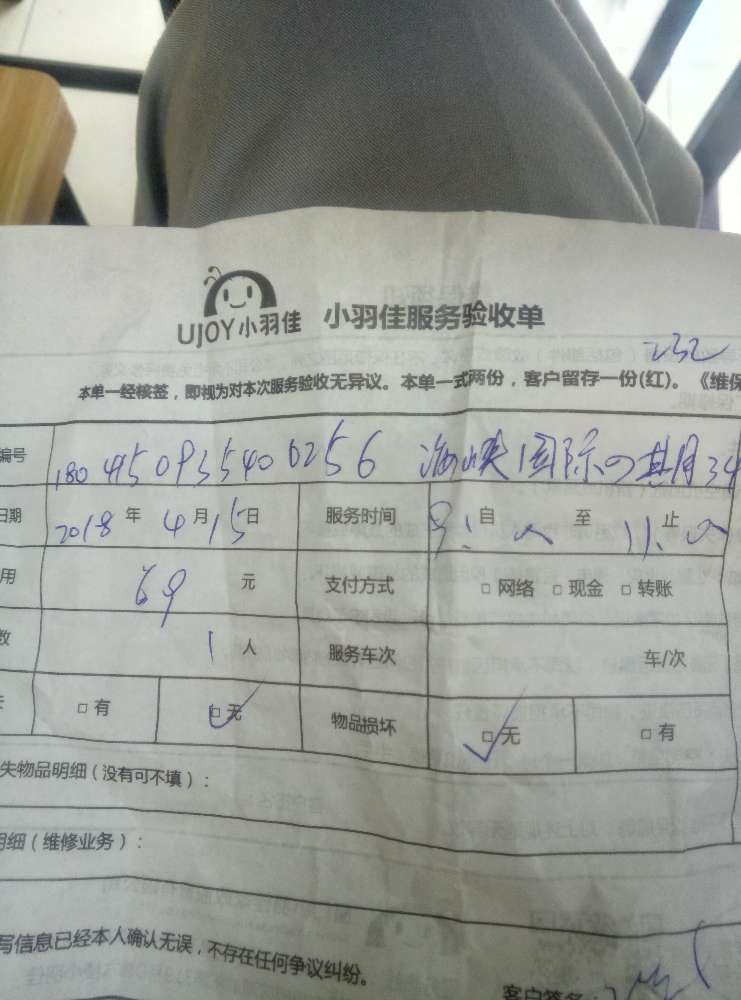 UJOY小羽佳 小羽佳服务验收单
232
本单一经核签，即视为对本次服务验收无异议。本单一式两份，客户留存一份(红)。《维保
编号 1804150935400256 海峡国际
日期 2018年4月15日 服务时间 自 至 止
用 69元 支付方式 □网络 □现金 □转账
数 1人 服务车次 车/次
□有 □无 物品损坏 □无 □有
失物品明细（没有可不填）：
明细（维修业务）：
写信息已经本人确认无误，不存在任何争议纠纷。
客户签名